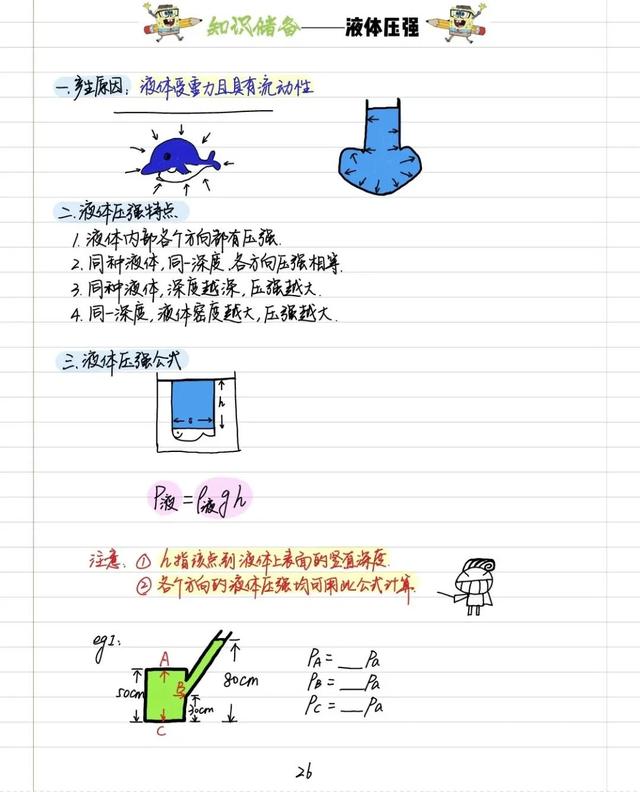 知识储备——液体压强
一.产生原因: 液体受重力且具有流动性
二.液体压强特点
1.液体内部各个方向都有压强.
2.同种液体,同一深度,各方向压强相等.
3.同种液体,深度越深,压强越大.
4.同一深度,液体密度越大,压强越大.
三.液体压强公式
h
s
P液=ρ液gh
注意: ① h指该点到液体上表面的竖直深度.
② 各个方向的液体压强均可用此公式计算.
eg1:
A
B
C
50cm
30cm
80cm
PA=___Pa
PB=___Pa
PC=___Pa
26